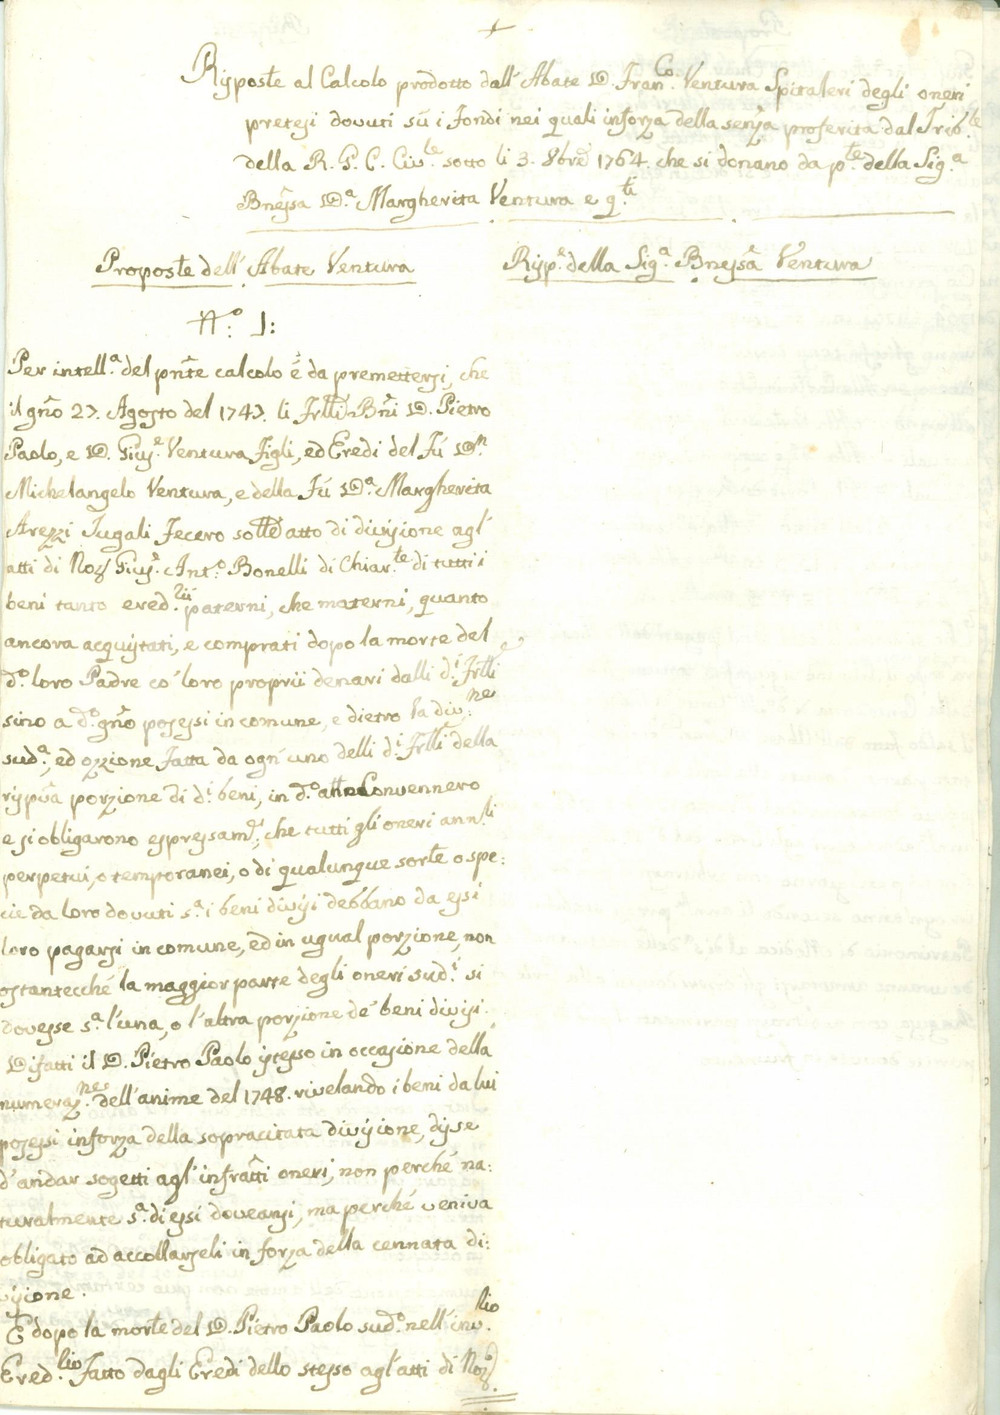 +
Risposte al Calcolo prodotto dall' Abate D. Fran.co Ventura Spitaleri degli oneri
pretesi dovuti sù i fondi nei quali inforza della senza proferita dal Trib.le
della R. G. C. Civ.le sotto li 3. 8bre 1764. che si donano da p.te della Sig.a
Bnessa D.a Margherita Ventura e q.ti
Proposte dell' Abate Ventura
N.o 1:
Per intell.a del pnte calcolo è da premettersi, che
il gno 27. Agosto del 1747. li Frlli Bni D. Pietro
Paolo, e D. Gius.e Ventura figli, ed Eredi del fù D.n
Michelangelo Ventura, e della fù D.a Margherita
Arezzi Iugali fecero sotto atto di divisione agl'
atti di No.r Gius.e Ant.o Bonelli di Chiar.te di tutti i
beni tanto ered.rii paterni, che materni, quanto
ancora acquistati, e comprati dopo la morte del
d.o loro Padre co' loro proprii denari dalli d.i Frlli
sino a d.o gno possessi in comune, e dietro la div.ne
sud.a, ed ozzione fatta da ogn' uno delli d.i Frlli della
rispva porzione di d.i beni, in d.o atto Convennero
e si obligarono espressam.e, che tutti gli oneri ann.li
perpetui, o temporanei, o di qualunque sorte o spe:
cie da loro dovuti s.a i beni divisi debbano da essi
loro pagarsi in comune, ed in ugual porzione, non
ostantecché la maggior parte degli oneri sud.i si
dovesse s.a l'una, o l'altra porzione de' beni divisi.
Difatti il D. Pietro Paolo istesso in occasione della
numeraz.ne dell'anime del 1748. rivelando i beni da lui
possessi inforza della sopracitata divisione, disse
d'andar sogetti agl' infratti oneri, non perché na:
turalmente s.a di essi doveansi, ma perché veniva
obligato ad accollarseli in forza della cennata di:
visione.
E dopo la morte del D. Pietro Paolo sud.o nell' inv.rio
Ered.rio fatto dagli Eredi dello stesso agl'atti di No.r
Risp.e della Sig.a Bnessa Ventura